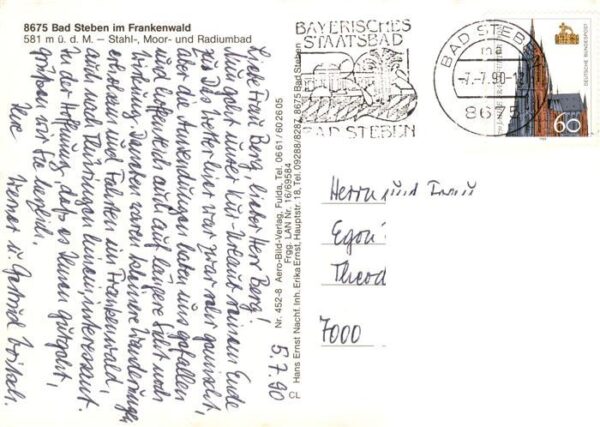 8675 Bad Steben im Frankenwald
581 m ü. d. M. – Stahl-, Moor- und Radiumbad
Liebe Frau Berg, lieber Herr Berg!
Nun geht unser Kur-Urlaub zu Ende
das Wetter hier war zwar sehr gemischt,
aber die Anwendungen haben uns gefallen
und auch auf längere Zeit noch
Daneben waren schöne Wanderungen
erlebnisse und Fahrten im Frankenwald,
auch nach Thüringen hinein, interessant.
In der Hoffnung, daß es Ihnen gut geht,
grüßen Sie herzlich
Ihre
Werner u. Gertrud
5.7.90
Nr. 452-8 Aero-Bild-Verlag, Fulda, Tel. 06 61 / 60 26 05
Frgg. LAN Nr. 16/69584
Hans Ernst Nachf. Inh. Erika Ernst, Hauptstr. 18, Tel. 09288/8287, 8675 Bad Steben
CL
BAYERISCHES
STAATSBAD
BAD STEBEN
BAD STEBEN
-7.-7.90-12
8675
DEUTSCHE BUNDESPOST
60
Herrn und Frau
Egon
Theod
7000